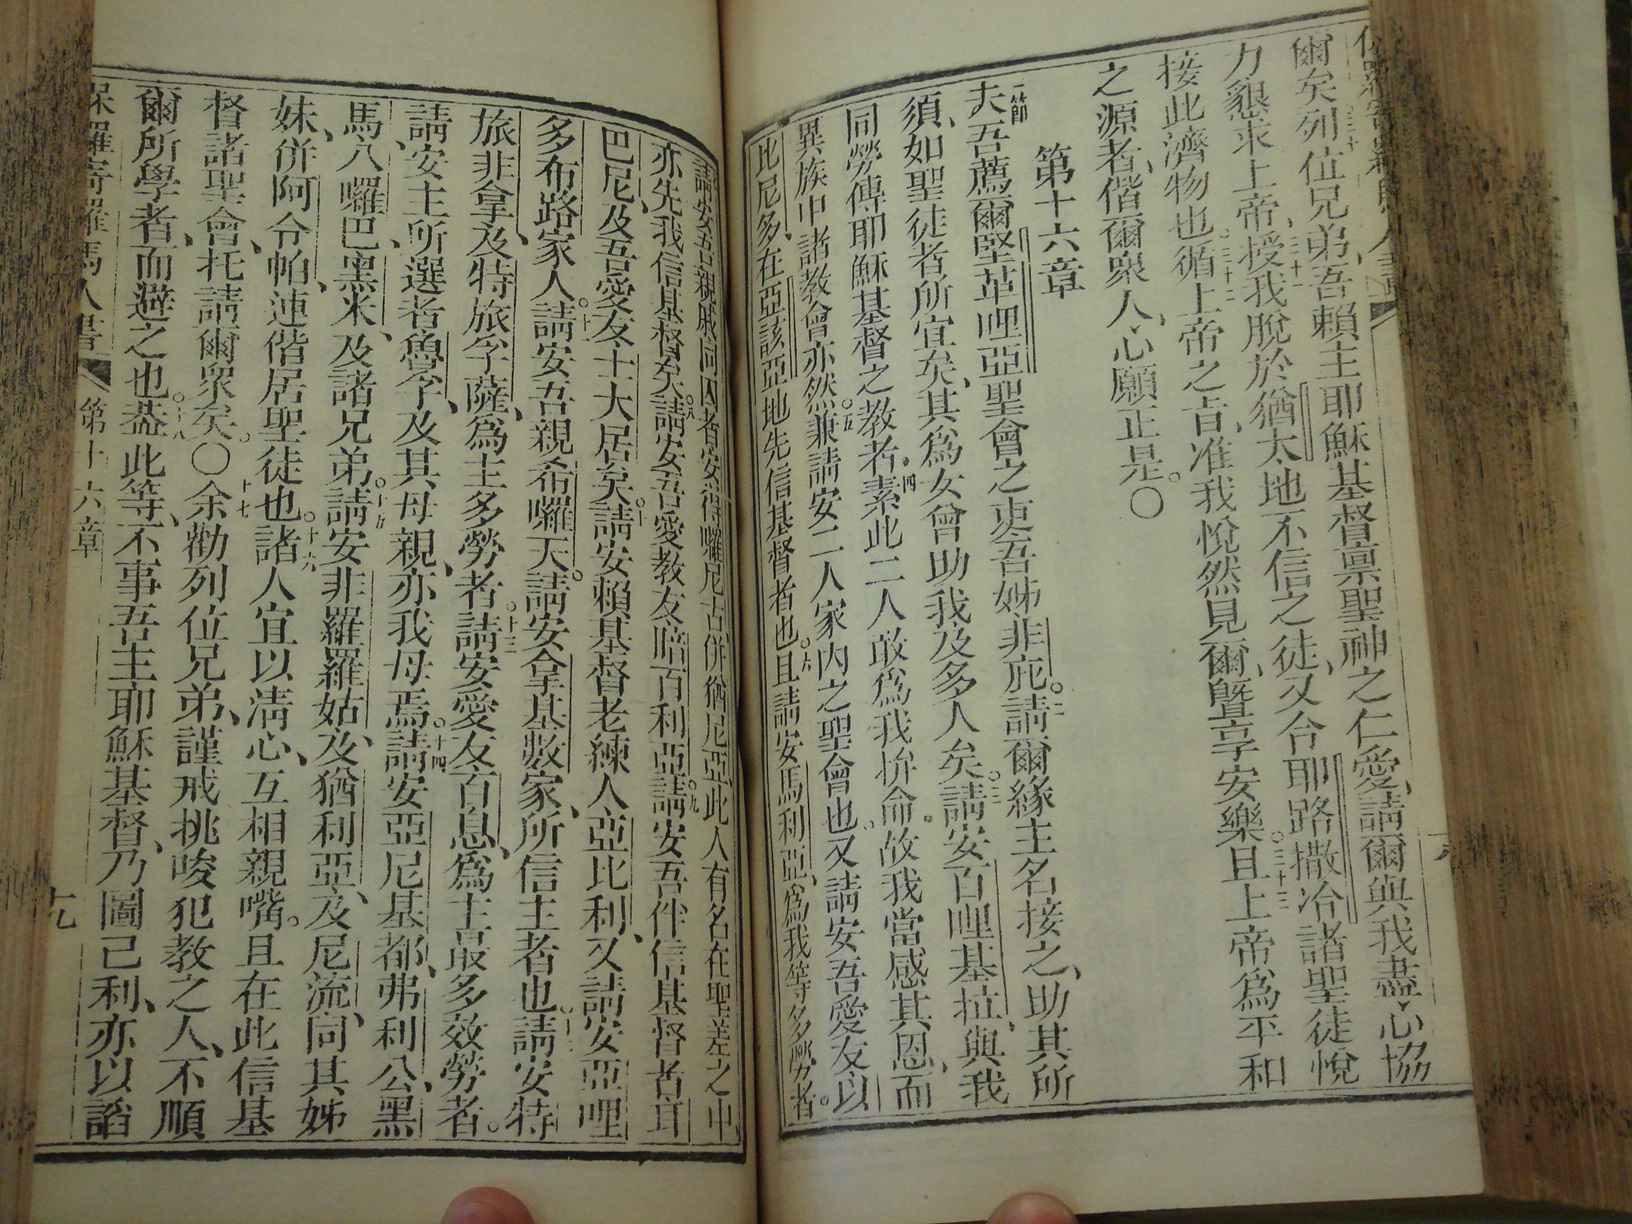 爾矣列位兄弟吾賴主耶穌基督禀聖神之仁愛、請爾與我盡心協
力懇求上帝、三十一授我脫於猶太地不信之徒、又台耶路撒冷諸聖徒悅
接此濟物也。三十二循上帝之旨、准我悅然見爾、曁享安樂。三十三且上帝爲平和
之源者、偕爾衆人、心願正是。〇
第十六章
一節夫吾薦爾堅革哩亞聖會之吏吾姊非庇。二請爾緣主名接之、助其所
須、如聖徒者所宜矣、其爲女曾助我及多人矣。三請安百哩基拉、與我
同勞傳耶穌基督之教者。四素此二人敢爲我拚命。故我當感其恩、而
異族中諸教會亦然。五兼請安二人家內之聖會也。又請安吾愛友以
比尼多、在亞該亞地先信基督者也。六且請安馬利亞、爲我等多勞者。
請安吾親戚同囚者安得囉尼古併猶尼亞、此人有名在聖差之中
亦先我信基督矣。八請安吾愛教友暗百利亞。九請安吾伴信基督者耳
巴尼、及吾愛友士大居矣。十請安賴基督老練人亞比利、又請安亞哩
多布路家人。十一請安吾親希囉天。請安拿基數家、所信主者也。十二請安特
旅非拿、及特旅孚薩、爲主多勞者。十三請安愛友百息、爲主最多效勞者。
請安主所選者魯孚、及其母親、亦我母焉。十四請安亞尼基都、弗利公、黑
馬、八囉巴、黑米、及諸兄弟。十五請安非羅羅姑、及猶利亞、及尼流、同其姊
妹、併阿令帕、連偕居聖徒也。十六諸人宜以清心、互相親嘴。且在此信基
督諸聖會、托請爾衆矣。〇十七余勸列位兄弟、謹戒挑唆犯教之人、不順
爾所學者、而避之也。十八蓋此等、不事吾主耶穌基督、乃圖己利、亦以諂
保羅寄羅馬人書 第十六章 九